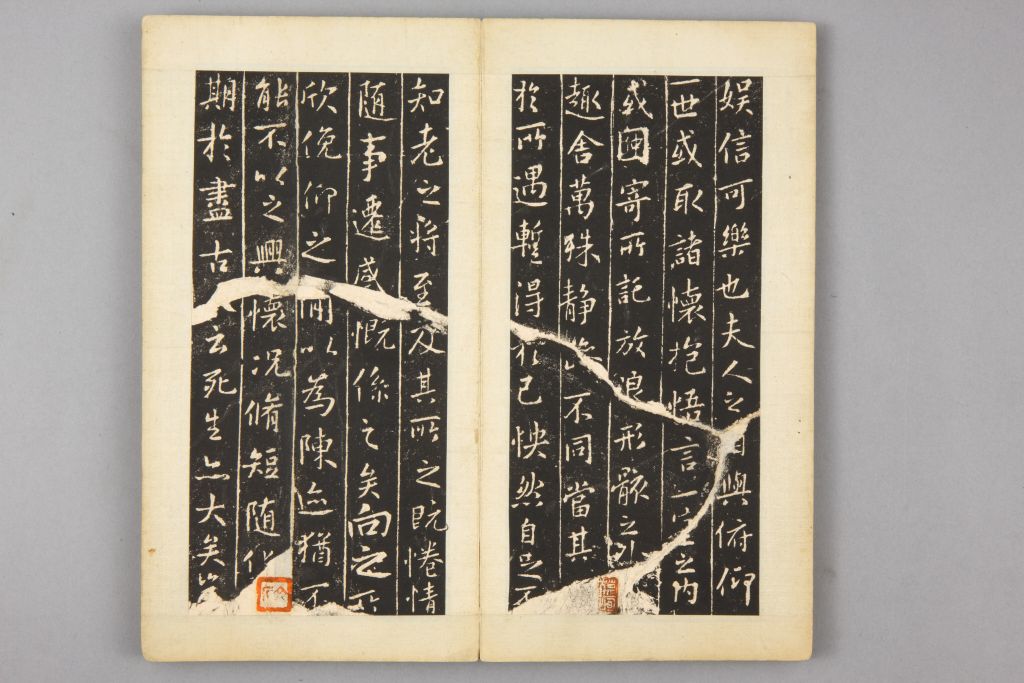 娱信可樂也夫人之與俯仰
一世或取諸懷抱悟言一室之内
或因寄所託放浪形骸之外
趣舍萬殊静不同當其
於所遇暫得於己怏然自足不
知老之將至及其所之既惓情
随事遷感慨係之矣向之所
欣俛仰之閒以為陳迹猶不
能不以之興懷况脩短随化
期於盡古云死生亦大矣